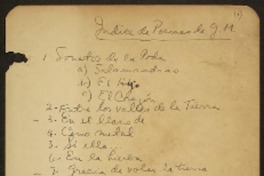 Indice de Poemas de G. M.
1. Sonatos de la Poda
a) Salamandras
b) El
c) El
2. Entre los valles de la Tierra
3. En el llano de
4. Como metal
5. Si ella
6. En la hierba
7. Gracia de volar la tierra